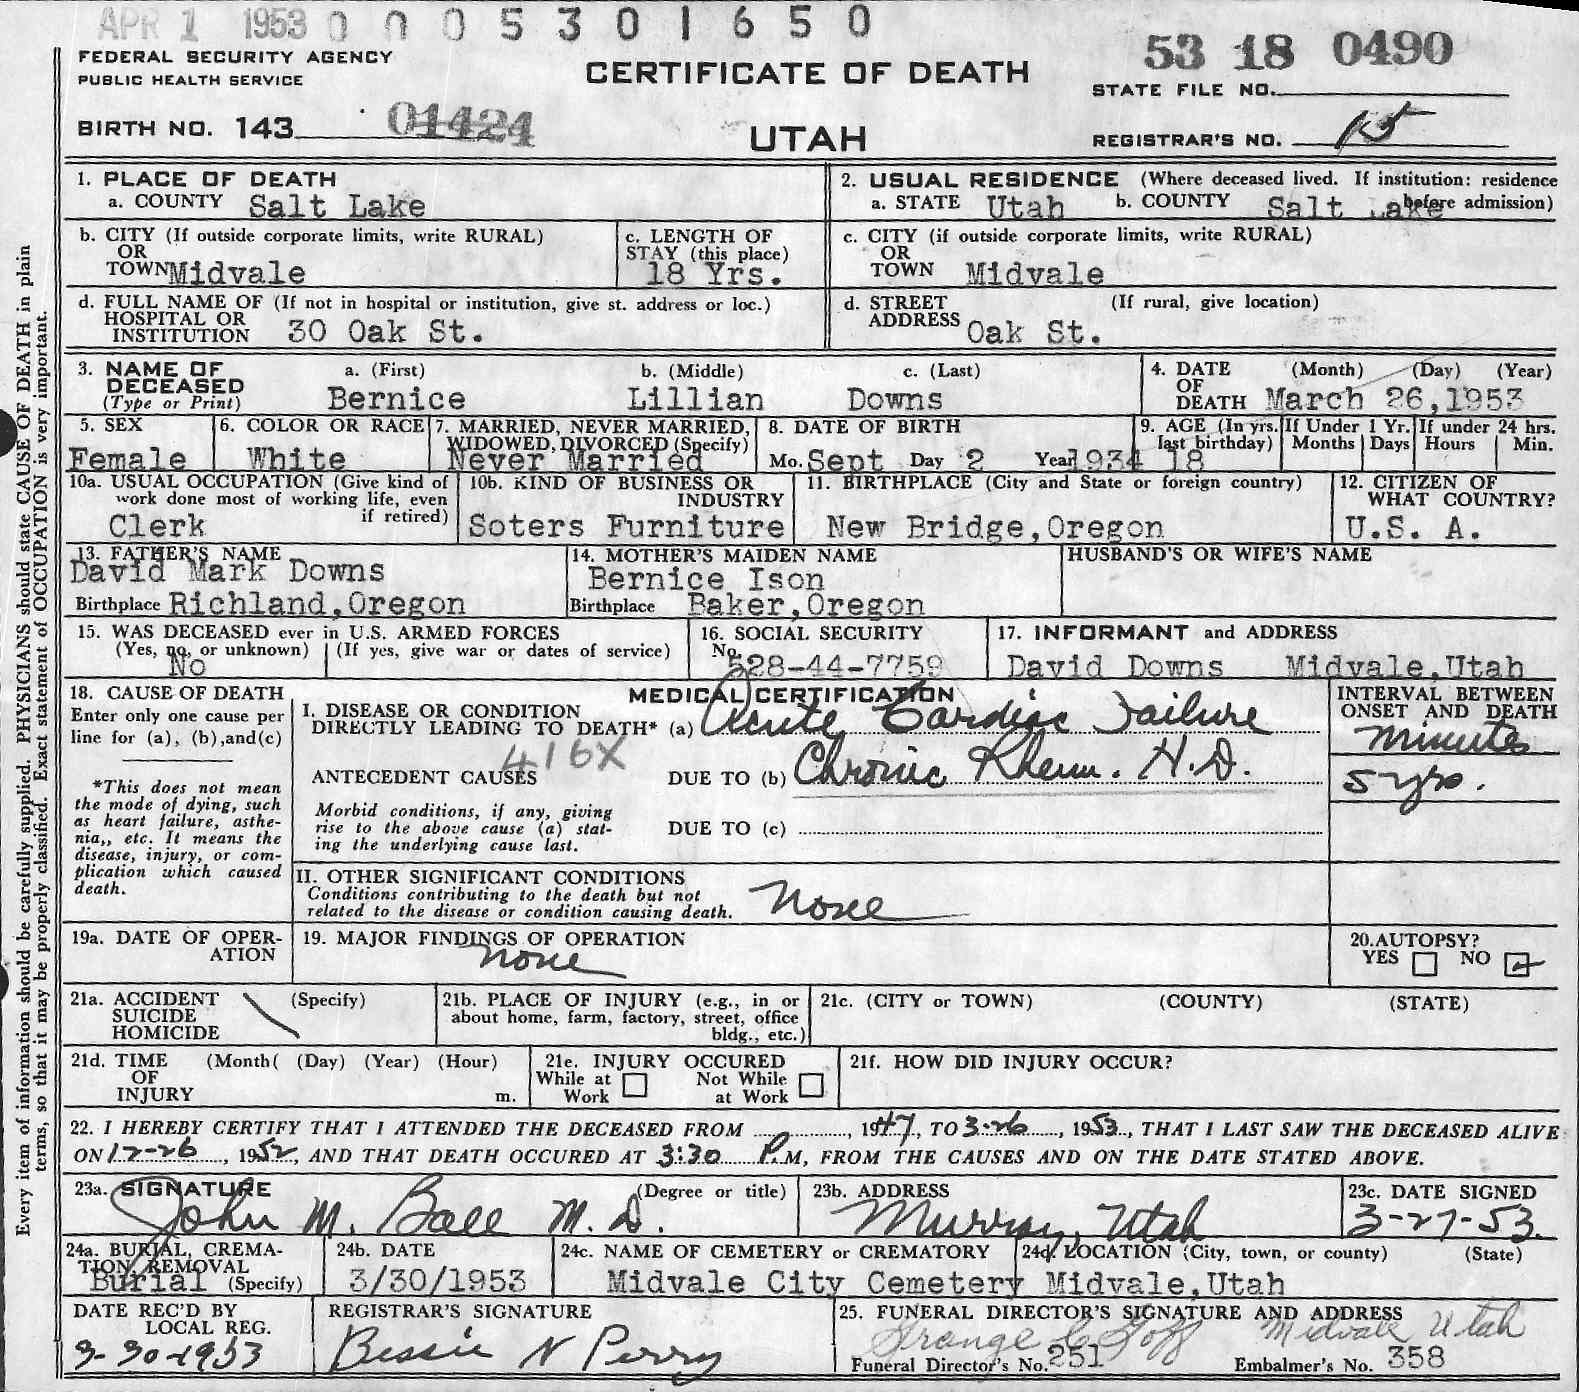 APR 1 1953 0 0 0 5 3 0 1 6 5 0
53 18 0490
FEDERAL SECURITY AGENCY
PUBLIC HEALTH SERVICE
CERTIFICATE OF DEATH
STATE FILE NO.
BIRTH NO. 143 01424
UTAH
REGISTRAR'S NO. 15
1. PLACE OF DEATH
a. COUNTY Salt Lake
2. USUAL RESIDENCE (Where deceased lived. If institution: residence before admission)
a. STATE Utah b. COUNTY Salt Lake
b. CITY (If outside corporate limits, write RURAL)
OR
TOWN Midvale
c. LENGTH OF
STAY (this place)
18 Yrs.
c. CITY (if outside corporate limits, write RURAL)
OR
TOWN Midvale
d. FULL NAME OF (If not in hospital or institution, give st. address or loc.)
HOSPITAL OR
INSTITUTION 30 Oak St.
d. STREET (If rural, give location)
ADDRESS Oak St.
3. NAME OF DECEASED (Type or Print)
a. (First) b. (Middle) c. (Last)
Bernice Lillian Downs
4. DATE OF DEATH (Month) (Day) (Year)
March 26,1953
5. SEX
Female
6. COLOR OR RACE
White
7. MARRIED, NEVER MARRIED,
WIDOWED, DIVORCED (Specify)
Never Married
8. DATE OF BIRTH
Mo. Sept Day 2 Year 1934
9. AGE (In yrs. last birthday) 18
If Under 1 Yr. Months Days
If under 24 hrs. Hours Min.
10a. USUAL OCCUPATION (Give kind of
work done most of working life, even
if retired)
Clerk
10b. KIND OF BUSINESS OR
INDUSTRY
Soters Furniture
11. BIRTHPLACE (City and State or foreign country)
New Bridge,Oregon
12. CITIZEN OF
WHAT COUNTRY?
U.S. A.
13. FATHER'S NAME
David Mark Downs
Birthplace Richland,Oregon
14. MOTHER'S MAIDEN NAME
Bernice Ison
Birthplace Baker,Oregon
HUSBAND'S OR WIFE'S NAME
15. WAS DECEASED ever in U.S. ARMED FORCES
(Yes, no, or unknown) (If yes, give war or dates of service)
No
16. SOCIAL SECURITY
No. 528-44-7759
17. INFORMANT and ADDRESS
David Downs Midvale,Utah
18. CAUSE OF DEATH
Enter only one cause per
line for (a), (b),and(c)
*This does not mean
the mode of dying, such
as heart failure, asthe-
nia,, etc. It means the
disease, injury, or com-
plication which caused
death.
MEDICAL CERTIFICATION
I. DISEASE OR CONDITION
DIRECTLY LEADING TO DEATH* (a) Acute Cardiac Failure
416X
ANTECEDENT CAUSES DUE TO (b) Chronic Rheum. H.D.
Morbid conditions, if any, giving
rise to the above cause (a) stat-
ing the underlying cause last.
DUE TO (c)
INTERVAL BETWEEN
ONSET AND DEATH
Minutes
5 yrs.
II. OTHER SIGNIFICANT CONDITIONS
Conditions contributing to the death but not
related to the disease or condition causing death.
None
19a. DATE OF OPER-
ATION
19. MAJOR FINDINGS OF OPERATION
none
20.AUTOPSY?
YES NO
21a. ACCIDENT (Specify)
SUICIDE
HOMICIDE
21b. PLACE OF INJURY (e.g., in or
about home, farm, factory, street, office
bldg., etc.)
21c. (CITY or TOWN) (COUNTY) (STATE)
21d. TIME (Month( (Day) (Year) (Hour)
OF
INJURY m.
21e. INJURY OCCURED
While at Work Not While at Work
21f. HOW DID INJURY OCCUR?
22. I HEREBY CERTIFY THAT I ATTENDED THE DECEASED FROM , 1947, TO 3-26, 1953, THAT I LAST SAW THE DECEASED ALIVE
ON 12-26, 1952, AND THAT DEATH OCCURED AT 3:30 P.M, FROM THE CAUSES AND ON THE DATE STATED ABOVE.
23a. SIGNATURE (Degree or title)
John M. Ball M.D.
23b. ADDRESS
Murray, Utah
23c. DATE SIGNED
3-27-53
24a. BURIAL, CREMA-
TION REMOVAL
Burial (Specify)
24b. DATE
3/30/1953
24c. NAME OF CEMETERY or CREMATORY
Midvale City Cemetery
24d. LOCATION (City, town, or county) (State)
Midvale,Utah
DATE REC'D BY
LOCAL REG.
3-30-1953
REGISTRAR'S SIGNATURE
Bessie N Perry
25. FUNERAL DIRECTOR'S SIGNATURE AND ADDRESS
Goff Midvale Utah
Funeral Director's No. 251 Embalmer's No. 358
Every item of information should be carefully supplied. PHYSICIANS should state CAUSE OF DEATH in plain
terms, so that it may be properly classified. Exact statement of OCCUPATION is very important.